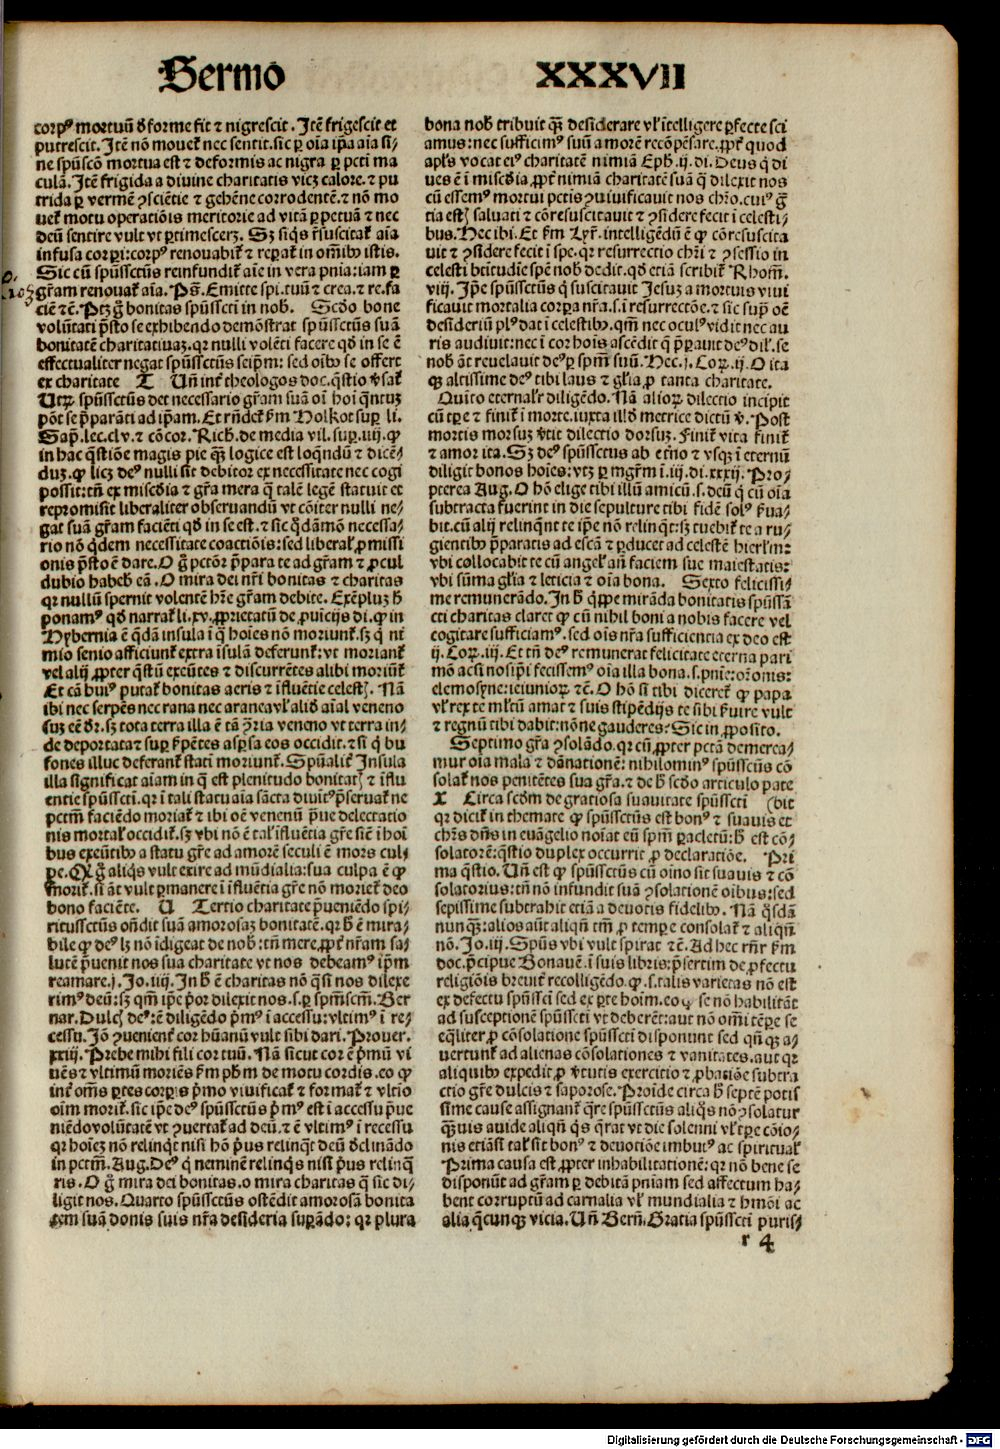 Sermo XXXVII
corpꝰ mortuū ꝺforme fit ⁊ nigrescit. Itē frigescit et
putrescit. Itē nō mouet᷑ nec sentit. sic ꝑ oīa ip̄a aīa si⸗
ne spūscō mortua est ⁊ deformis ac nigra ꝑ pcti ma
culā. Itē frigida a divine charitatis vicꝫ calore. ⁊ pu
trida ꝑ vermē ꝯsciētie ⁊ gehēne corrodentē. ⁊ nō mo
uet᷑ motu operatiōis meritorie ad vitā ꝑpetuā ⁊ nec
deū sentire vult vt ꝑtimescerꝫ. Sꝫ siq̄s r̄suscitat᷑ aīa
infusa corpori: corpꝰ renouabit᷑ ⁊ reꝑat᷑ in om̄ibꝰ istis.
Sic cū spūssctūs reinfundit᷑ aīe in vera pn̄ia: iam ꝑ
gr̄am renouat᷑ aīa. Pꝰ. Emitte spi. tuū ⁊ crea. ⁊ re. fa
ciē ⁊c̄. Ptꝫ g̊ bonitas spūssctī in nob̄. Scd̄o bone
volūtati p̄sto se exhibendo demōstrat spūssctūs suā
bonitatē charitatiuaꝫ. qꝛ nulli volēti facere qd̄ in se ē
effectualiter negat spūssctūs seip̄m: sed oībꝰ se offert
ex charitate T Un̄ int᷑ theologos doc. q̄stio v̄sat᷑
Utꝝ spūssctūs det necessario gr̄am suā oī hoī q̄ntuꝫ
pōt se p̄parāti ad ip̄am. Et rn̄det᷑ ẜm Holkot suꝑ li.
Sap̄. lec. clv. ⁊ cōcor. Rich. de media vil. suꝑ. iiij. ꝙ
in hac q̄stiōe magis pie q̄ꝫ logice est loq̄ndū ⁊ dicē⸗
duꝫ. ꝙ licꝫ deꝰ nulli sit debitor ex necessitate nec cogi
possit: tn̄ ex mis̄cdia ⁊ gr̄a mera q̄ talē legē statuit et
repromisit liberaliter obseruandū vt cōiter nulli ne⸗
gat suā gr̄am faciēti qd̄ in se est. ⁊ sic q̄dāmō necessa⸗
rio nō q̄dem necessitate coactiōis: sed liberal᷑ promissi
onis p̄sto ē dare. O g̊ pctōr p̄para te ad gr̄am ⁊ ꝓcul
dubio habeb᷑ eā. O mira dei nr̄i bonitas ⁊ charitas
qꝛ nullū spernit volentē hr̄e gr̄am debite. Exēpluꝫ h̄
ponamꝰ qd̄ narrat᷑ li. xv. ꝓprietatū de ꝓuīcijs di. ꝙ in
Hybernia ē q̄dā insula ī q̄ hoīes nō moriunt᷑. sꝫ q̄ ni
mio senio afficiunt᷑ extra īsulā deferunt᷑: vt moriant᷑
vel alij ꝓpter q̄stū exeūtes ⁊ discurrētes alibi moriūt᷑
Et cā huiꝰ putat᷑ bonitas aeris ⁊ īfluētie celestꝭ. Nā
ibi nec serpēs nec rana nec aranea vl᷑ aliꝺ aīal veneno
suꝫ eē ꝺr̄. sꝫ tota terra illa ē tā ꝯr̄ia veneno vt terra in⸗
de deportata ⁊ suꝑ ẜpētes asp̄sa eos occidit. ⁊ si q̄ bu
fones illuc deferant᷑ stati moriunt᷑. Spūalit᷑ Insula
illa significat aīam in q̄ est plenitudo bonitatꝭ ⁊ īflu
entie spūsscti. qꝛ ī tali statu aīa sācta diuīt᷑ p̄seruat᷑ ne
pctm̄ faciēdo moriat᷑ ⁊ ibi oē venenū p̄ue delectatio
nis mortal᷑ occidit᷑. sꝫ vbi nō ē tal᷑ īfluētia gr̄e sic̄ ī hoī
bus exeūtibꝰ a statu gr̄e ad amorē seculi ē mors cul⸗
pe. Qꝛ g̊ aliq̄s vult exire ad mūdialia: sua culpa ē ꝙ
morit᷑. si āt vult ꝑmanere ī īfluētia gr̄e nō moriet᷑ deo
bono faciēte. U Tertio charitate p̄ueniēdo spi⸗
ritussctūs on̄dit suā amorosaꝫ bonitatē. qꝛ h̄ ē mira⸗
bile ꝙ deꝰ lꝫ nō īdigeat de nob̄: tn̄ mere. ꝓpt᷑ nr̄am sa⸗
lutē p̄uenit nos sua charitate vt nos debeamꝰ ip̄m
reamare. j. Jo. iiij. In h̄ ē charitas nō q̄si nos dilexe
rimꝰ deū: sꝫ qm̄ ip̄e p̄or dilexit nos. s. ꝑ spm̄scm̄. Ber
nar. Dulcꝭ deꝰ: ē diligēdo p̄mꝰ ī accessu: vltimꝰ ī re⸗
cessu. Jō ꝯuenient᷑ cor hūanū vult sibi dari. Prouer.
xxiij. Prebe mihi fili cor tuū. Nā sicut cor ē p̄mū vi
uēs ⁊ vltimū moriēs ẜm ph̄m de motu cordis. eo ꝙ
int᷑ om̄s ꝑtes corpis p̄mo viuificat᷑ ⁊ format᷑ ⁊ vltīo
oīm morit᷑. sic ip̄e deꝰ spūssctūs p̄mꝰ est ī accessu p̄ue
niēdo volūtatē vt ꝯuertat᷑ ad deū. ⁊ ē vltimꝰ ī recessu
qꝛ hoīeꝫ nō relinq̄t nisi hō p̄us relinq̄t deū ꝺclinādo
in pctm̄. Aug. Deꝰ q̄ neminē relinq̄s nisi p̄us relinq̄
ris. O g̊ mira dei bonitas. o mira charitas q̄ sic di⸗
ligit nos. Quarto spūssctūs ostēdit amorosā bonita
tem suā donis suis nr̄a desideria suꝑādo: qꝛ plura
bona nob̄ tribuit q̄ꝫ desiderare vl᷑ itelligere ꝑfecte sci
amus: nec sufficimꝰ suū amorē recōpēsare. ꝓpt᷑ quod
apl̄s vocat eiꝰ charitatē nimiā Eph̄. ij. di. Deus q̄ di
ues ē ī mis̄cdia, ꝓpt᷑ nimiā charitatē suā q̄ dilexit nos
cū essemꝰ mortui pctis ꝯuiuificauit nos chr̄o. cuiꝰ g̊
tia estꝭ saluati ⁊ cōresuscitauit ⁊ ꝯsidere fecit ī celesti⸗
bus. Hec ibi. Et ẜm Lyr̄. intelligēdū ē ꝙ cōresuscita
uit ⁊ ꝯsidere fecit ī spe. qꝛ resurrectio chr̄i ⁊ ꝯsessio in
celesti btitudīe spē nob̄ dedit. qd̄ etiā scribit᷑ Rhom̄.
viij. Ip̄e spūssctūs q̄ suscitauit Jesuꝫ a mortuis viui
ficauit mortalia corꝑa nr̄a. s. ī resurrectōe. ⁊ sic suꝑ oē
desideriū plꝰ dat ī celestibꝰ. qm̄ nec oculꝰ vidit nec au
ris audiuit: nec ī cor hoīs ascēdit q̄ p̄parauit deꝰ dil᷑. se
nob̄ āt reuelauit deꝰ ꝑ spm̄ suū. Hec. j. Coꝝ. ij. O ita
q̄ꝫ altissime deꝰ tibi laus ⁊ gl̄ia ꝓ tanta charitate.
Quīto eternal᷑r diligēdo. Nā alioꝝ dilectio incipit
cū tꝑe ⁊ finit᷑ ī morte. iuxta illd̄ metrice dictū v̄. Post
mortis morsuꝫ v̄tit dilectio dorsuꝫ. Finit᷑ vita finit᷑
⁊ amor ita. Sꝫ deꝰ spūssctus ab et̄no ⁊ vsqꝫ ī eternū
diligit bonos hoīes: vtꝫ ꝑ mgr̄m ī. iij. di. xxxij. Pro⸗
pterea Aug. O hō elige tibi illū amicū. s. deū q̄ cū oīa
subtracta fuerint in die sepulture tibi fidē solꝰ ẜua⸗
bit. cū alij relinq̄nt te ip̄e nō relinq̄t: sꝫ tuebit᷑ te a ru⸗
gientibꝰ p̄paratis ad escā ⁊ ꝑducet ad celestē hierl̄m:
vbi collocabit te cū angel᷑ an̄ faciem sue maiestatis:
vbi sūma gl̄ia ⁊ leticia ⁊ oīa bona. Sexto felicissi⸗
me remunerādo. In h̄ q̄ꝓpe mirāda bonitatis spūssā
cti charitas claret ꝙ cū nihil boni a nobis facere vel
cogitare sufficiamꝰ. sed oīs nr̄a sufficientia ex deo est
ij. Coꝝ. iij. Et tn̄ deꝰ remunerat felicitate eterna pari
mō acsi nosip̄i fecissemꝰ oīa illa bona. s. pn̄ie: oronis:
elemosyne: ieiunioꝝ ⁊c̄. O hō si tibi diceret᷑ ꝙ papa
vl᷑ rex te ml̄tū amat ⁊ suis stipēdijs te sibi ẜuire vult
⁊ regnū tibi dabit: nōne gauderes: Sic in ꝓposito.
Septimo gr̄a ꝯsolādo. qꝛ cū ꝓpter pctā demerea⸗
mur oīa mala ⁊ dānationē: nihilominꝰ spūssctūs cō
solat᷑ nos penitētes sua gr̄a. ⁊ de h̄ scd̄o articulo pate
X Circa scd̄m de gratiosa suauitate spūsscti (bit
qꝛ dicit᷑ in themate ꝙ spūssctūs est bonꝰ ⁊ suauis et
chr̄s dn̄s in euāgelio noīat eū spm̄ ꝑacletū: h̄ est cō⸗
solatorē: q̄stio duplex occurrit ꝓ declaratiōe. Pri
ma q̄stio. Un̄ est ꝙ spūssctūs cū oīno sit suauis ⁊ cō
solatorius: tn̄ nō infundit suā ꝯsolationē oībus: sed
sepissime subtrahit etiā a deuotis fidelibꝰ. Nā q̄sdā
nunq̄ꝫ: alios aūt aliqn̄ tm̄ ꝓ tempore consolat᷑ ⁊ aliqn̄
nō. Jo. iij. Spūs vbi vult spirat ⁊c̄. Ad hec rn̄r ẜm
doc. p̄cipue Bonauē. ī suis libris: p̄sertim de ꝓfectu
religiōis breuit᷑ recolligēdo. ꝙ. s. talis varietas nō est
ex defectu spūsscti sed ex ꝑte hoīm. eo ꝙ se nō habilitāt
ad susceptionē spūsscti vt deberēt: aut nō om̄i tēpore se
eq̄liter ꝓ cōsolatione spūsscti disponunt sed qn̄q̄ꝫ a⸗
uertunt᷑ ad alienas cōsolationes ⁊ vanitates. aut qꝛ
aliquibꝰ expedit ꝓ v̄tutis exercitio ⁊ ꝓbatiōe subtra
ctio gr̄e dulcis ⁊ saporose. Proīde circa h̄ septē potis
sime cause assignant᷑ q̄re spūssctūs aliq̄s nō ꝯsolatur
q̄ꝫuis auide aliqn̄ q̄s q̄rat vt die solenni vl᷑ tꝑe cōio⸗
nis etiāsi tal᷑ sit bonꝰ ⁊ deuotiōe imbutꝰ ac spiritual᷑
Prima causa est ꝓpter inhabilitationē: qꝛ nō bene se
disponūt ad gr̄am ꝑ debitā pn̄iam sed affectum ha⸗
bent corruptū ad carnalia vl᷑ mundialia ⁊ hmōi ac
alia q̄cunqꝫ vicia. Un̄ Bern̄. Gratia spūsscti puris⸗
r 4
Digitalisierung gefördert durch die Deutsche Forschungsgemeinschaft - DFG